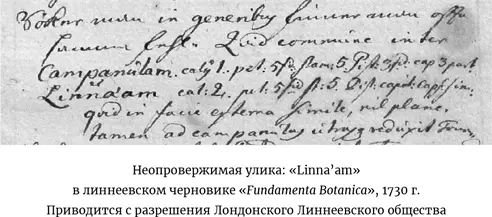 in generibus
Quid commune inter
Campanulam. cal: 1. pet: 5fid. stam: 5. Pist: 3fid. cap: 3 part
Linna'am cal: 2. pet: 5fid st: 5. Pist:
quid in facie externa simile, nil plane,
tamen ad campanulas reduxit
Неопровержимая улика: «Linna’am»
в линнеевском черновике «Fundamenta Botanica», 1730 г.
Приводится с разрешения Лондонского Линнеевского общества